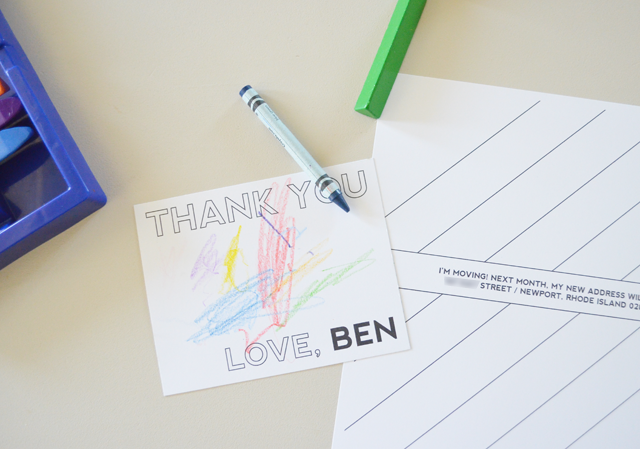 THANK YOU
LOVE, BEN
I'M MOVING! NEXT MONTH, MY NEW ADDRESS
STREET / NEWPORT, RHODE ISLAND